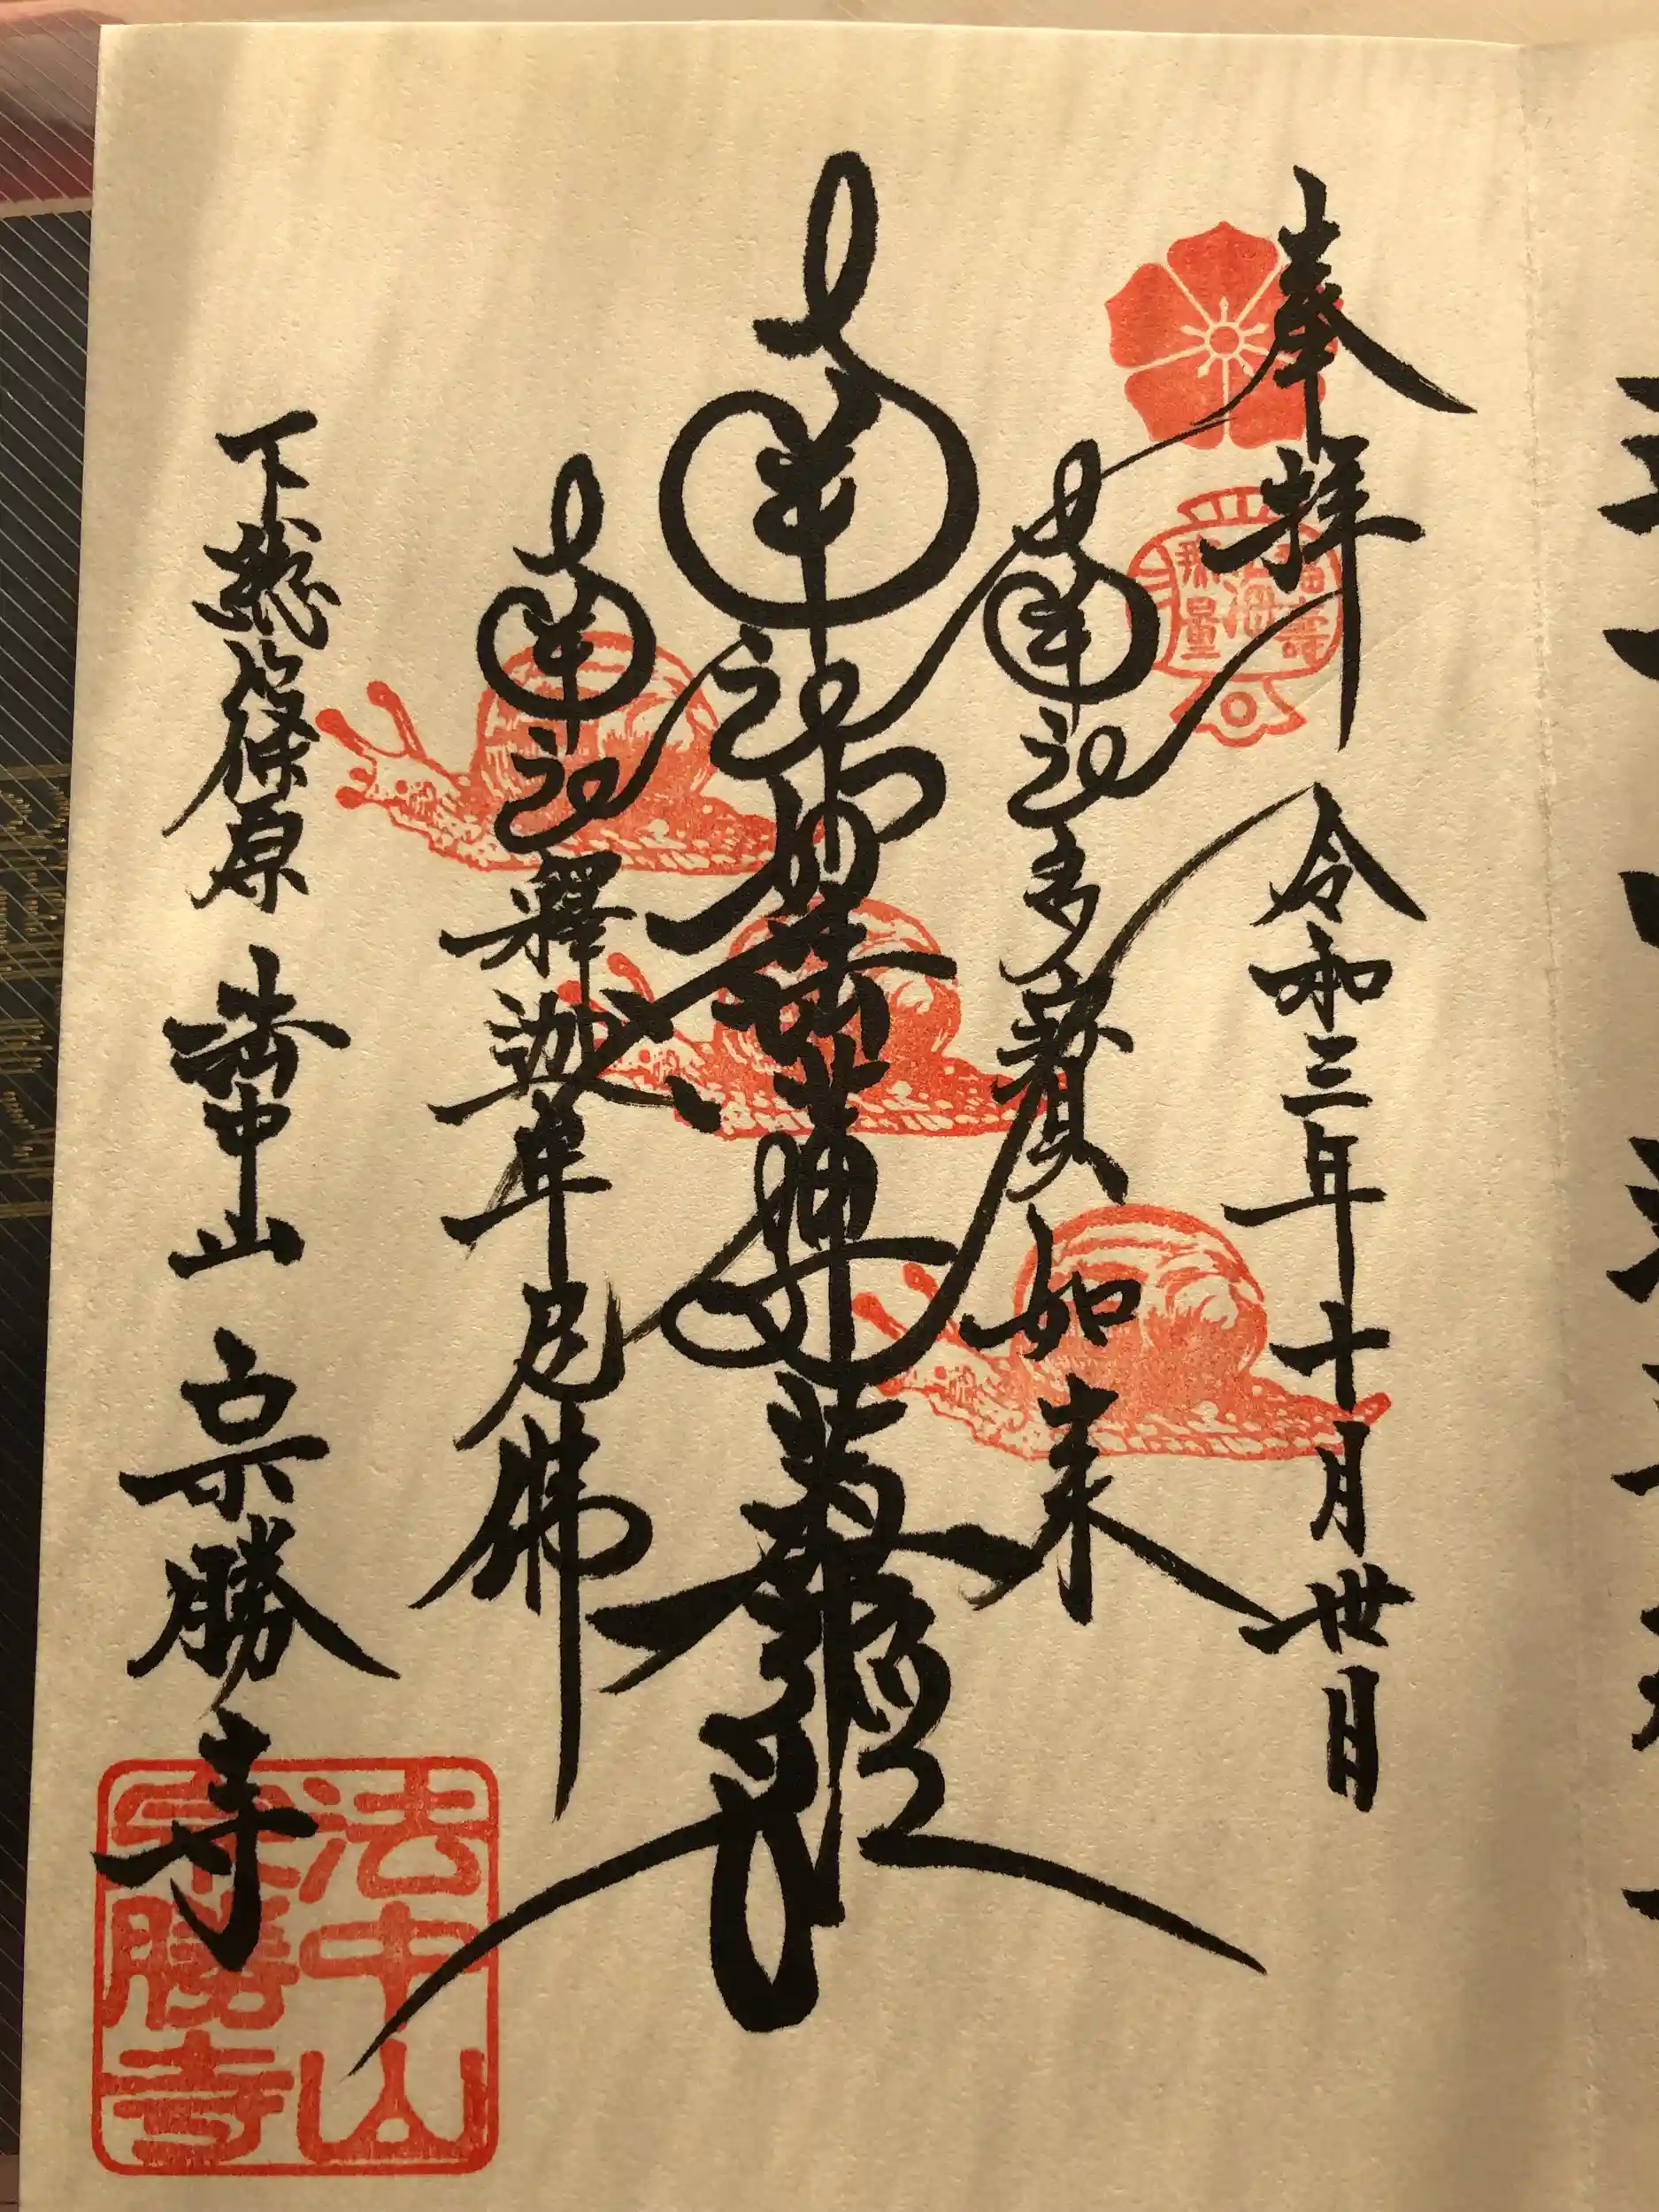 奉拝 令和三年十月丗日
南無多寳如来
南無妙法蓮華經
南無釋迦牟尼佛
下総篠原 法中山 宗勝寺
法中山
宗勝寺